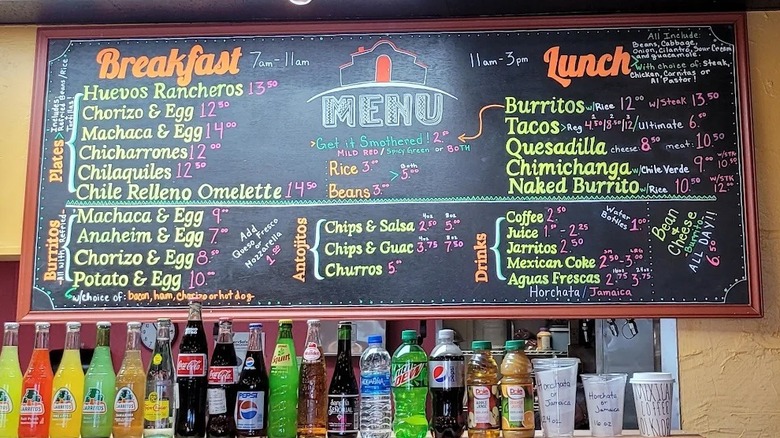 Breakfast 7am-11am
Plates
Includes
Refried Beans/Rice
Huevos Rancheros 13.50
Chorizo & Egg 12.50
Machaca & Egg 14.00
Chicharrones 12.00
Chilaquiles 12.50
Chile Relleno Omelette 14.50
MENU
Get it Smothered! 2.50
MILD RED / Spicy Green or BOTH
Rice 3.00
Beans 3.00
Both
> 5.00
11am-3pm Lunch
All Include:
Beans, Cabbage,
Onion, Cilantro, Sour Cream
and guacamole.
With choice of: Steak,
Chicken, Carnitas or
Al Pastor!
Burritos w/Rice 12.00 w/Steak 13.50
Tacos >Reg 4.50/8.00/12/Ultimate 6.00
Quesadilla cheese: 8.50 meat: 10.50
Chimichanga w/Chile Verde 9.00 w/STK 10.50
Naked Burrito w/Rice 10.50 w/STK 12.00
Burritos
Machaca & Egg 9.00
Anaheim & Egg 7.00
Chorizo & Egg 8.50
Potato & Egg 10.00
w/choice of: bacon, ham, chorizo or hot dog
Add
Queso Fresco
or
Mozzarella
1.00
Antojitos
Chips & Salsa 4oz 2.50 8oz 5.00
Chips & Guac 4oz 3.75 8oz 7.50
Churros 5.00
Drinks
Coffee 2.50
Juice 1.00-2.25
Jarritos 2.50
Mexican Coke 2.50-3.00
Aguas Frescas 2.50 3.75
Horchata / Jamaica
Water
Bottles 1.00
Bean &
Cheese
Burritos
ALL DAY!!
6.50
JARRITOS
JARRITOS
JARRITOS
JARRITOS
JARRITOS
Coca-Cola
Coca-Cola
PEPSI
Squirt
SEÑORIAL
AQUAFINA
Mtn Dew
pepsi
Dole
Dole
HORCHATA
or
Jamaica
24 oz
HORCHATA
or Jamaica
16 oz
MEXICAN
COFFEE